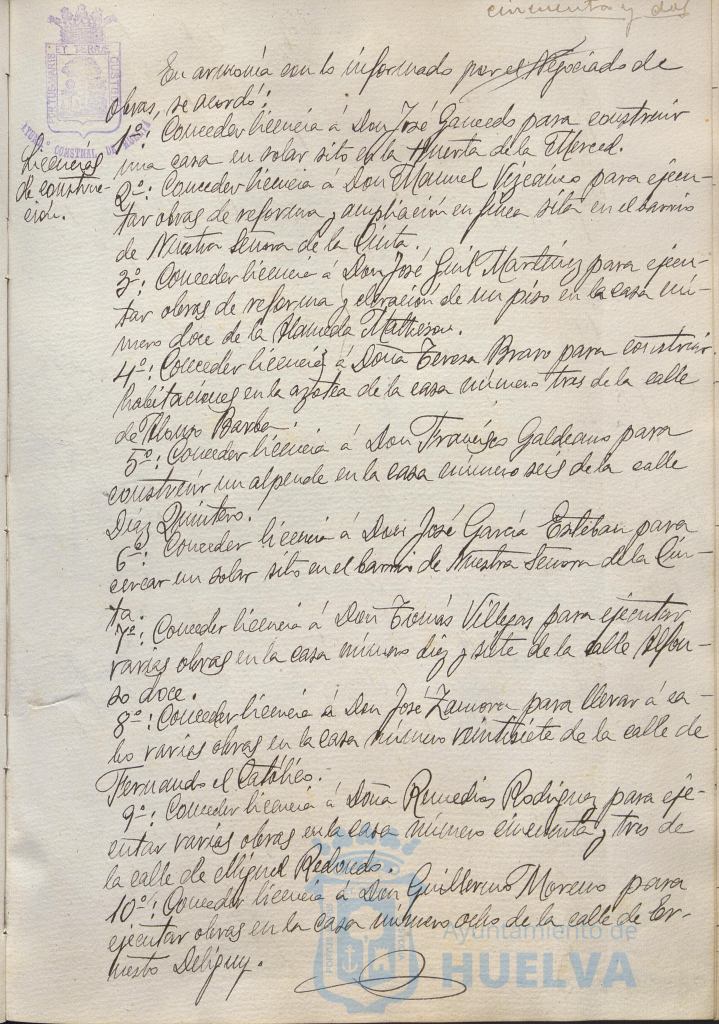 cincuenta y dos
PORTUS MARIS ET TERRÆ CUSTODIA
AYUNT.º CONSTNAL. DE HUELVA
Licencias
de construc-
ción.
En armonía con lo informado por el Negociado de
obras, se acordó:
1º: Conceder licencia á Don José Gancedo para construir
una casa en solar sito en la Huerta de la Merced.
2º: Conceder licencia á Don Manuel Vizcaino para ejecu-
tar obras de reforma y ampliación en finca sita en el barrio
de Nuestra Señora de la Cinta.
3º: Conceder licencia á Don José Gil Martínez para ejecu-
tar obras de reforma y elevación de un piso en la casa nú-
mero doce de la Alameda Matheson.
4º: Conceder licencia á Doña Teresa Bravo para construir
habitaciones en la azotea de la casa número tres de la calle
de Alonso Barba.
5º: Conceder licencia á Don Francisco Galdeano para
construir un alpende en la casa número seis de la calle
Díaz Quintero.
6º: Conceder licencia á Don José García Esteban para
cercar un solar sito en el barrio de Nuestra Señora de la Cin-
ta.
7º: Conceder licencia á Don Tomás Villegas para ejecutar
varias obras en la casa número diez y siete de la calle Alfon-
so doce.
8º: Conceder licencia á Don José Zamora para llevar á ca-
bo varias obras en la casa número veintisiete de la calle de
Fernando el Católico.
9º: Conceder licencia á Doña Remedios Rodríguez para eje-
cutar varias obras en la casa número cincuenta y tres de
la calle de Miguel Redondo.
10º: Conceder licencia á Don Guillermo Moreno para
ejecutar obras en la casa número ocho de la calle de Er-
nesto Deligny.
Ayuntamiento de
HUELVA